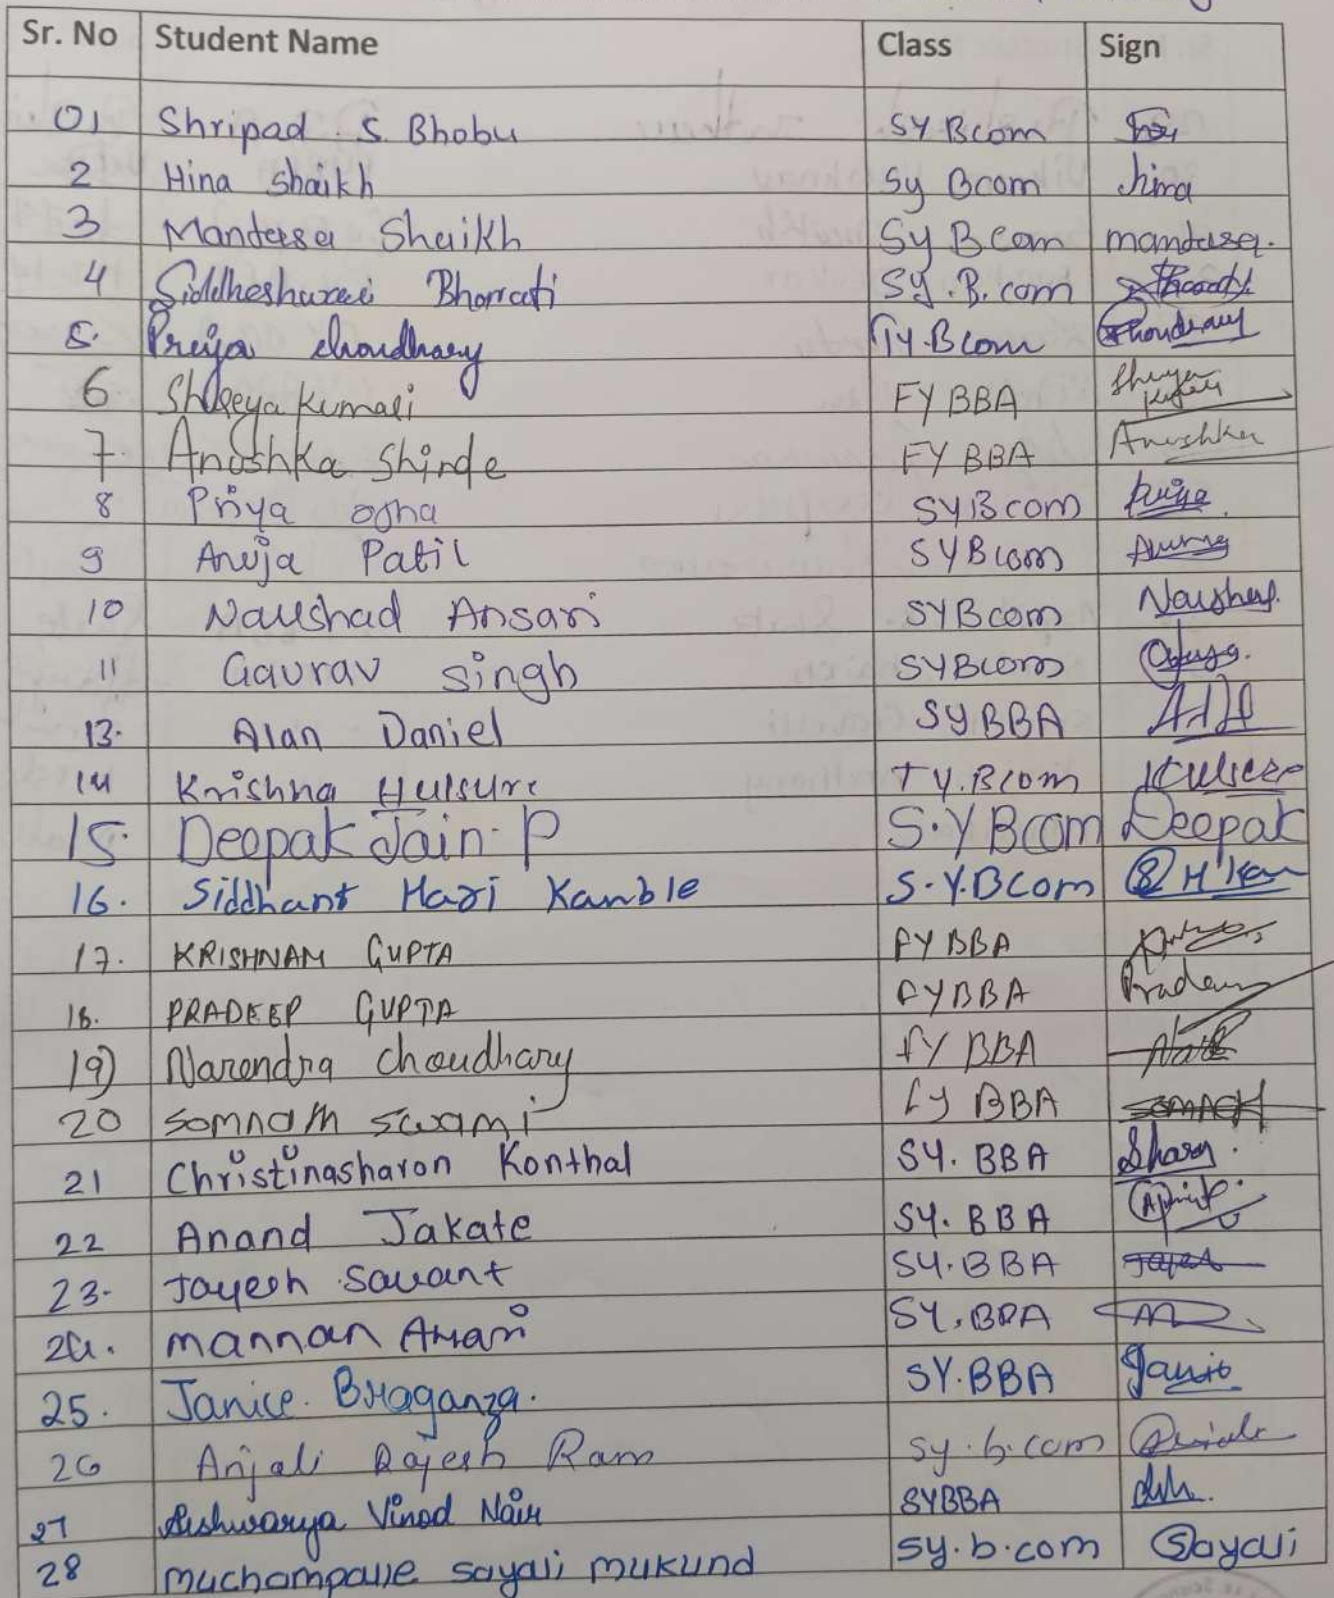 Sr. No Student Name Class Sign
01 Shripad . S. Bhobu SY Bcom
2 Hina Shaikh Sy Bcom hina
3 Mantasa Shaikh Sy Bcom mantasa.
4 Siddheshwari Bharati Sy. B. com
5. Priya choudhary Ty. Bcom Choudhary
6 Shreeya Kumari FY BBA Shreya Kumari
7. Anushka Shinde FY BBA Anushka
8 Priya ojha SYBcom Priya.
9 Anuja Patil SYBcom
10 Naushad Ansari SYBcom Naushad.
11 Gaurav Singh SYBcom
13. Alan Daniel SYBBA
14 Krishna Hulsure TY.Bcom Hulsure
15. Deepak Jain. P S.Y Bcom Deepak
16. Siddhant Hari Kamble S.Y.Bcom
17. KRISHNAM GUPTA FY BBA
18. PRADEEP GUPTA FYBBA Pradeep
19) Narendra choudhary FY BBA
20 somnath swami Fy BBA
21 Christinasharon Konthal SY. BBA Sharon.
22 Anand Jakate SY. BBA
23. Jayesh Sawant SY. BBA Jayesh
24. mannan Ansari SY. BBA
25. Janice. Braganza. SY.BBA Janice
26 Anjali Rajesh Ram Sy. b. com
27 Aishwarya Vinod Nair SYBBA
28 muchampalle sayali mukund sy. b. com Sayali